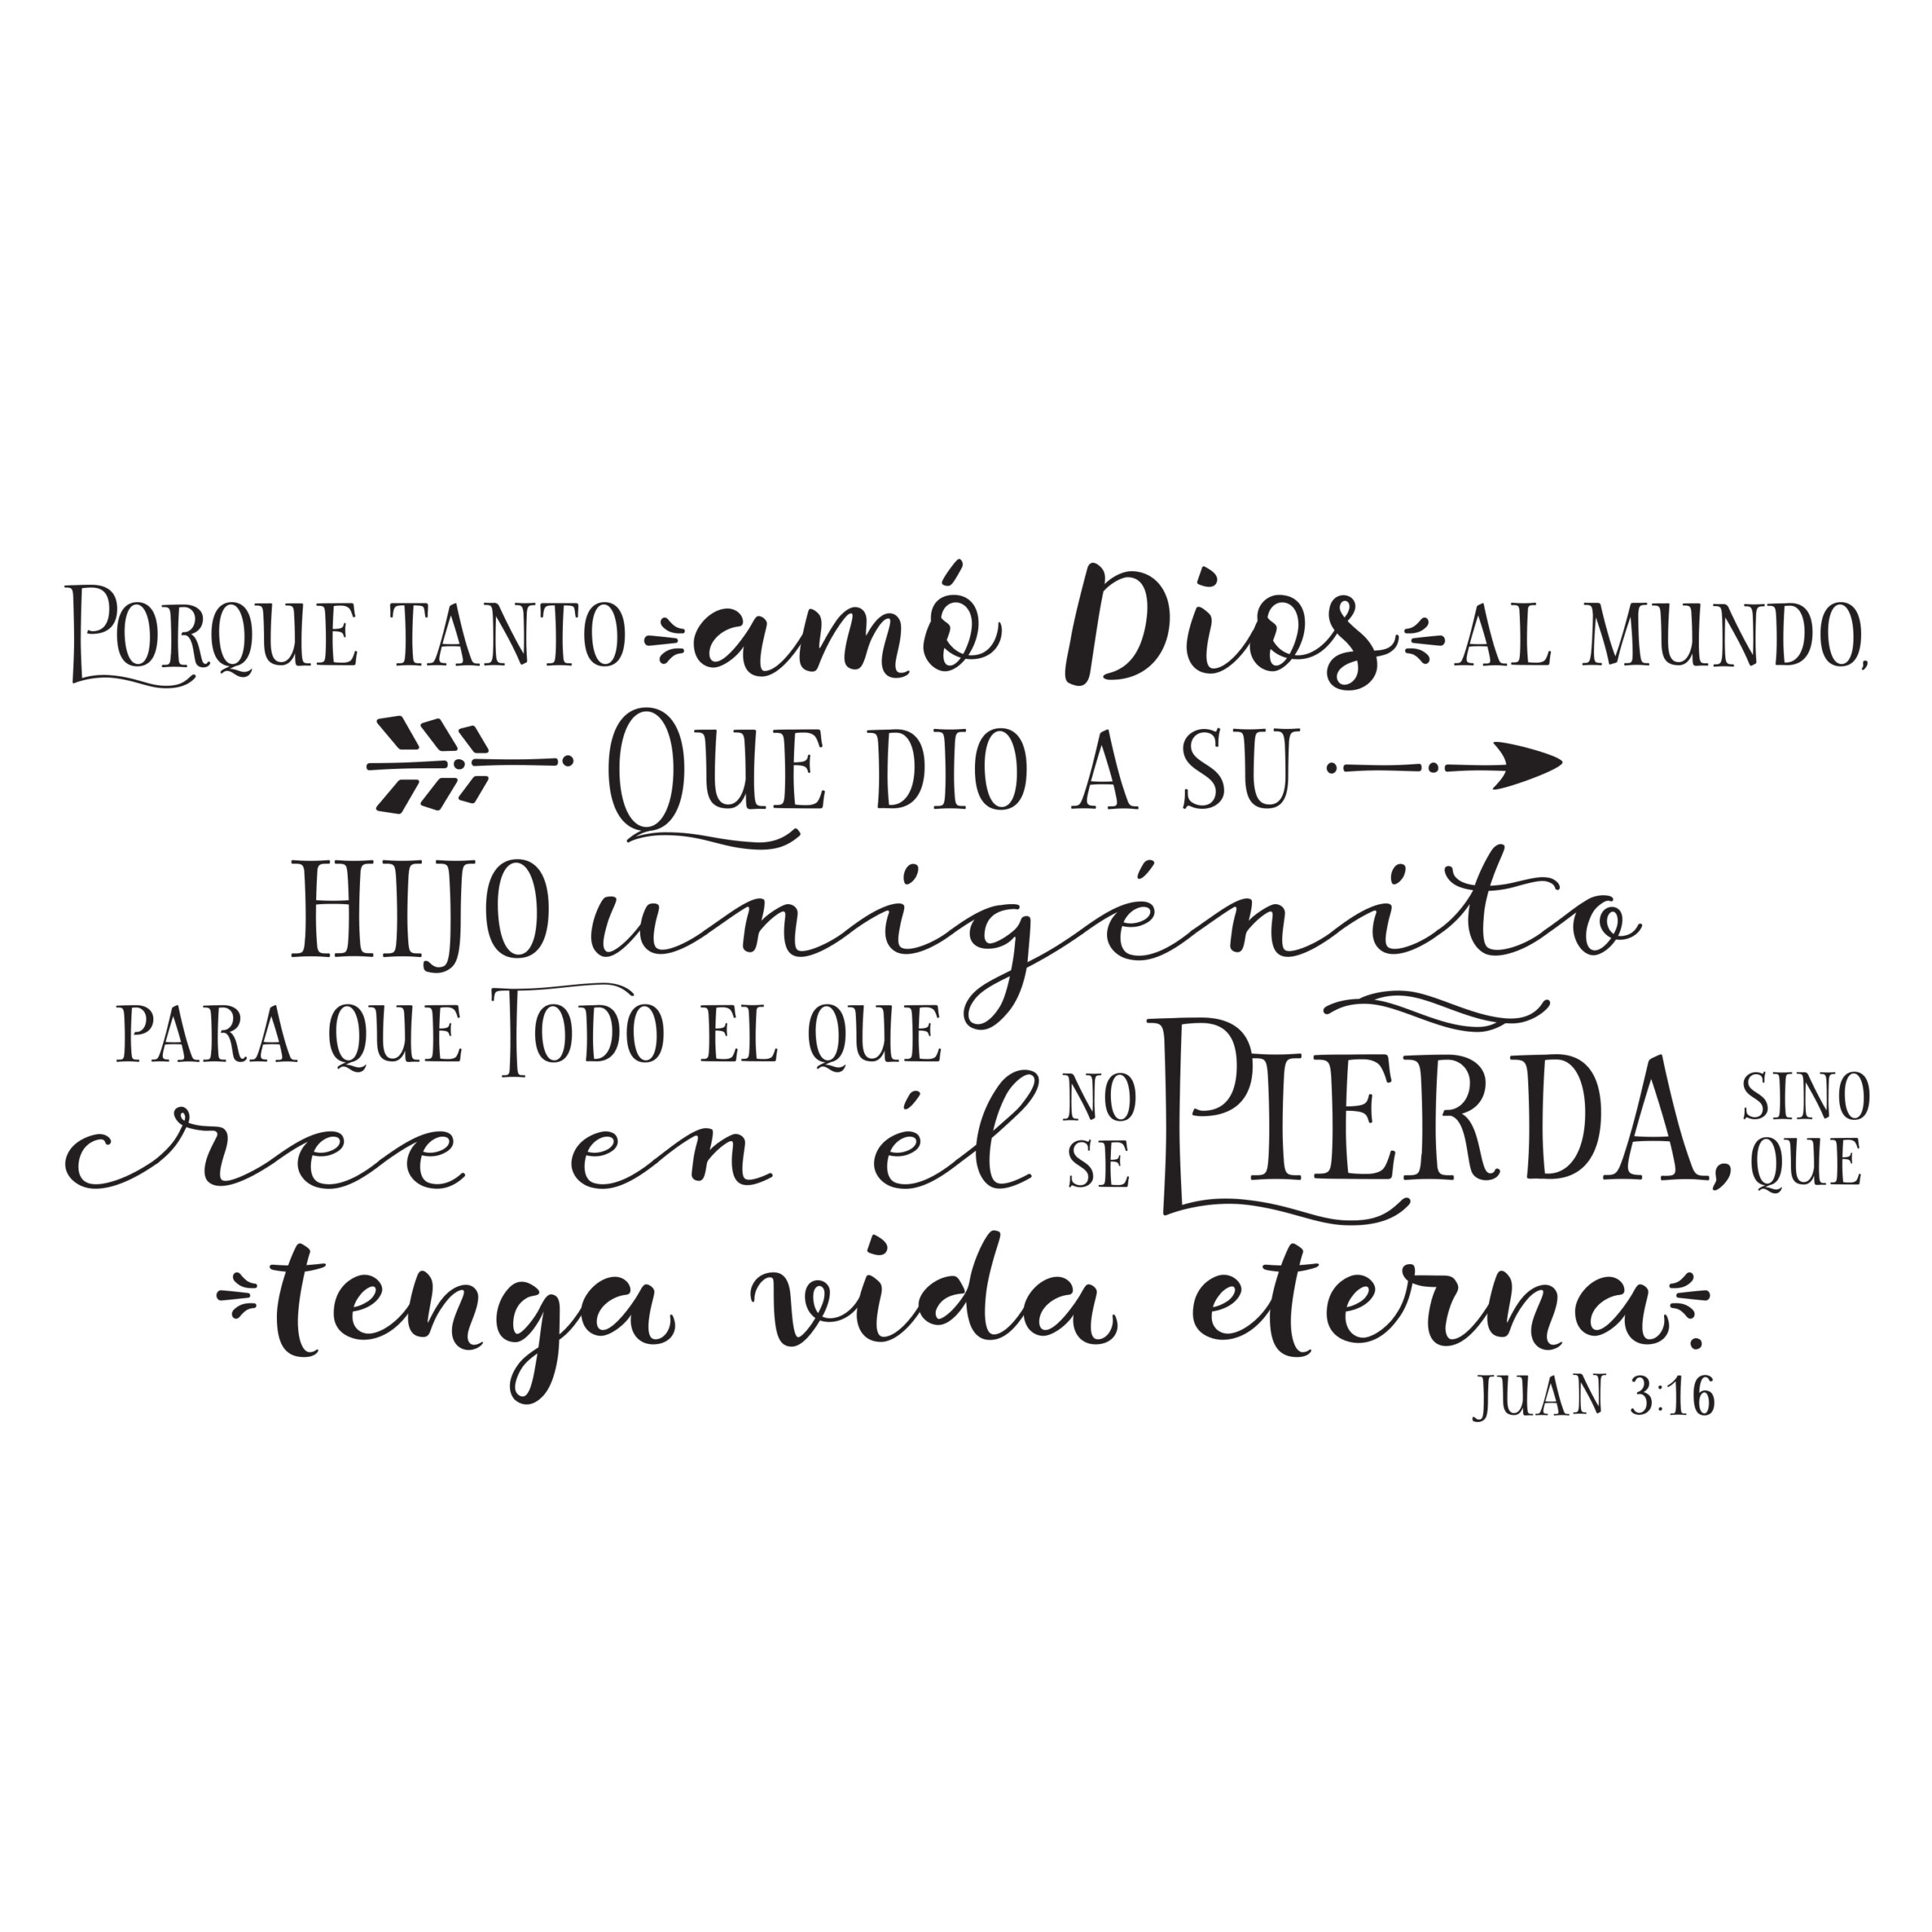 PORQUE TANTO amó Dios AL MUNDO,
QUE DIO A SU
HIJO unigénito
PARA QUE TODO EL QUE
cree en él NO SE PIERDA, SINO QUE
tenga vida eterna.
JUAN 3:16